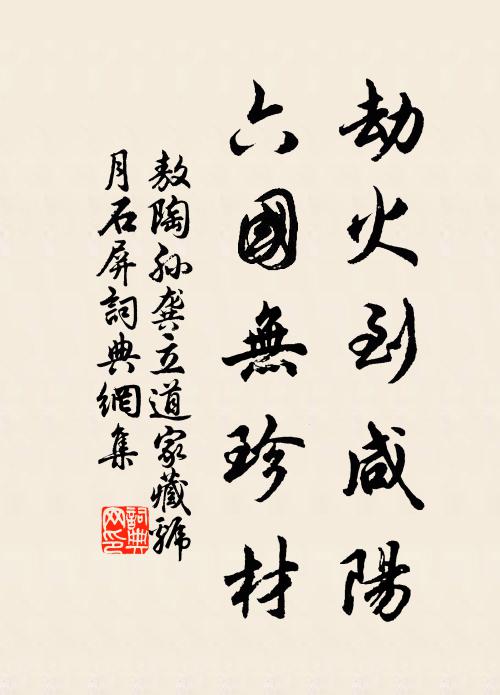 劫火到咸陽
六國無珍材
敖陶孙龔立道家藏號
月石屏詞典網集
詞典
网印